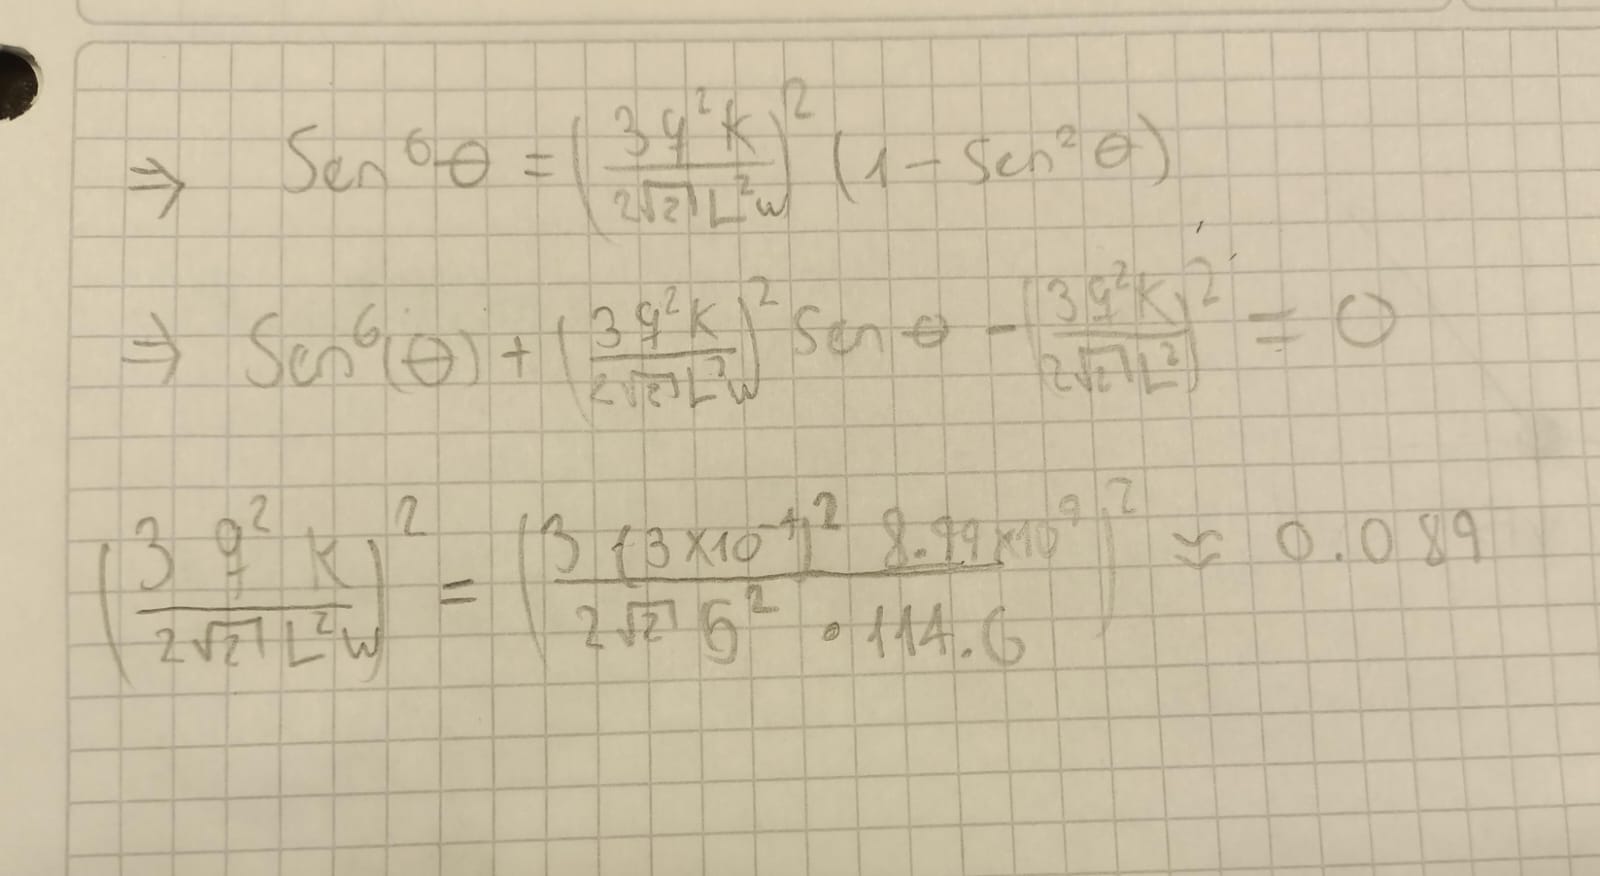 ⇒ Sen⁶θ = (3q²K / 2√2 L²w)² (1 − Sen²θ)
⇒ Sen⁶(θ) + (3q²K / 2√2 L²w)² Sen θ − (3q²K / 2√2 L²)² = 0
(3 q² K / 2√2 L²w)² = (3 (3×10⁻⁴)² 8.99×10⁹ / 2√2 5² • 114.6)² ≈ 0.089